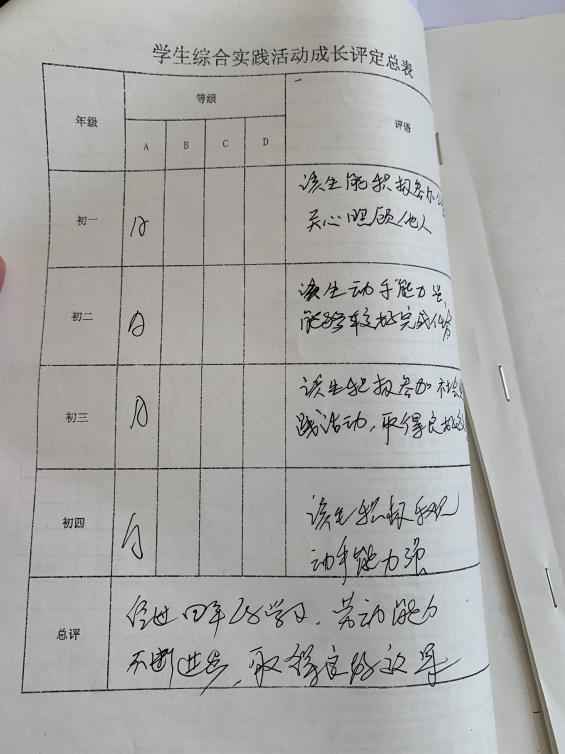 学生综合实践活动成长评定总表
年级
等级
评语
A
B
C
D
初一
A
该生能积极参加
关心照顾他人
初二
A
该生动手能力
能够较好完成任务
初三
A
该生积极参加社会
践活动，取得良好
初四
A
该生积极
动手能力强
总评
经过四年的学习，劳动能力
不断进步，取得良好效果